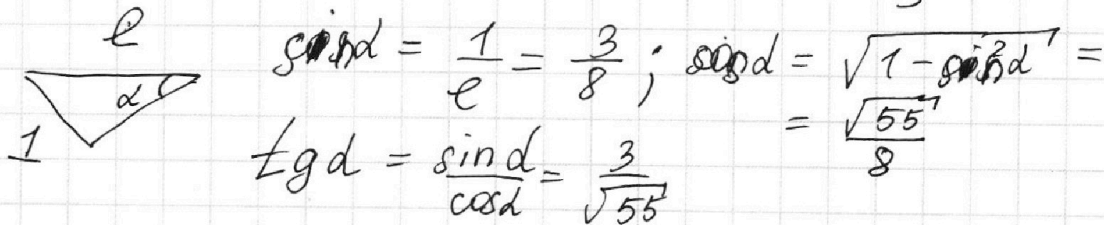 ℓ
sinα = 1/ℓ = 3/8 ; cosα = √(1 - sin²α) =
= √55/8
α
1
tgα = sinα/cosα = 3/√55